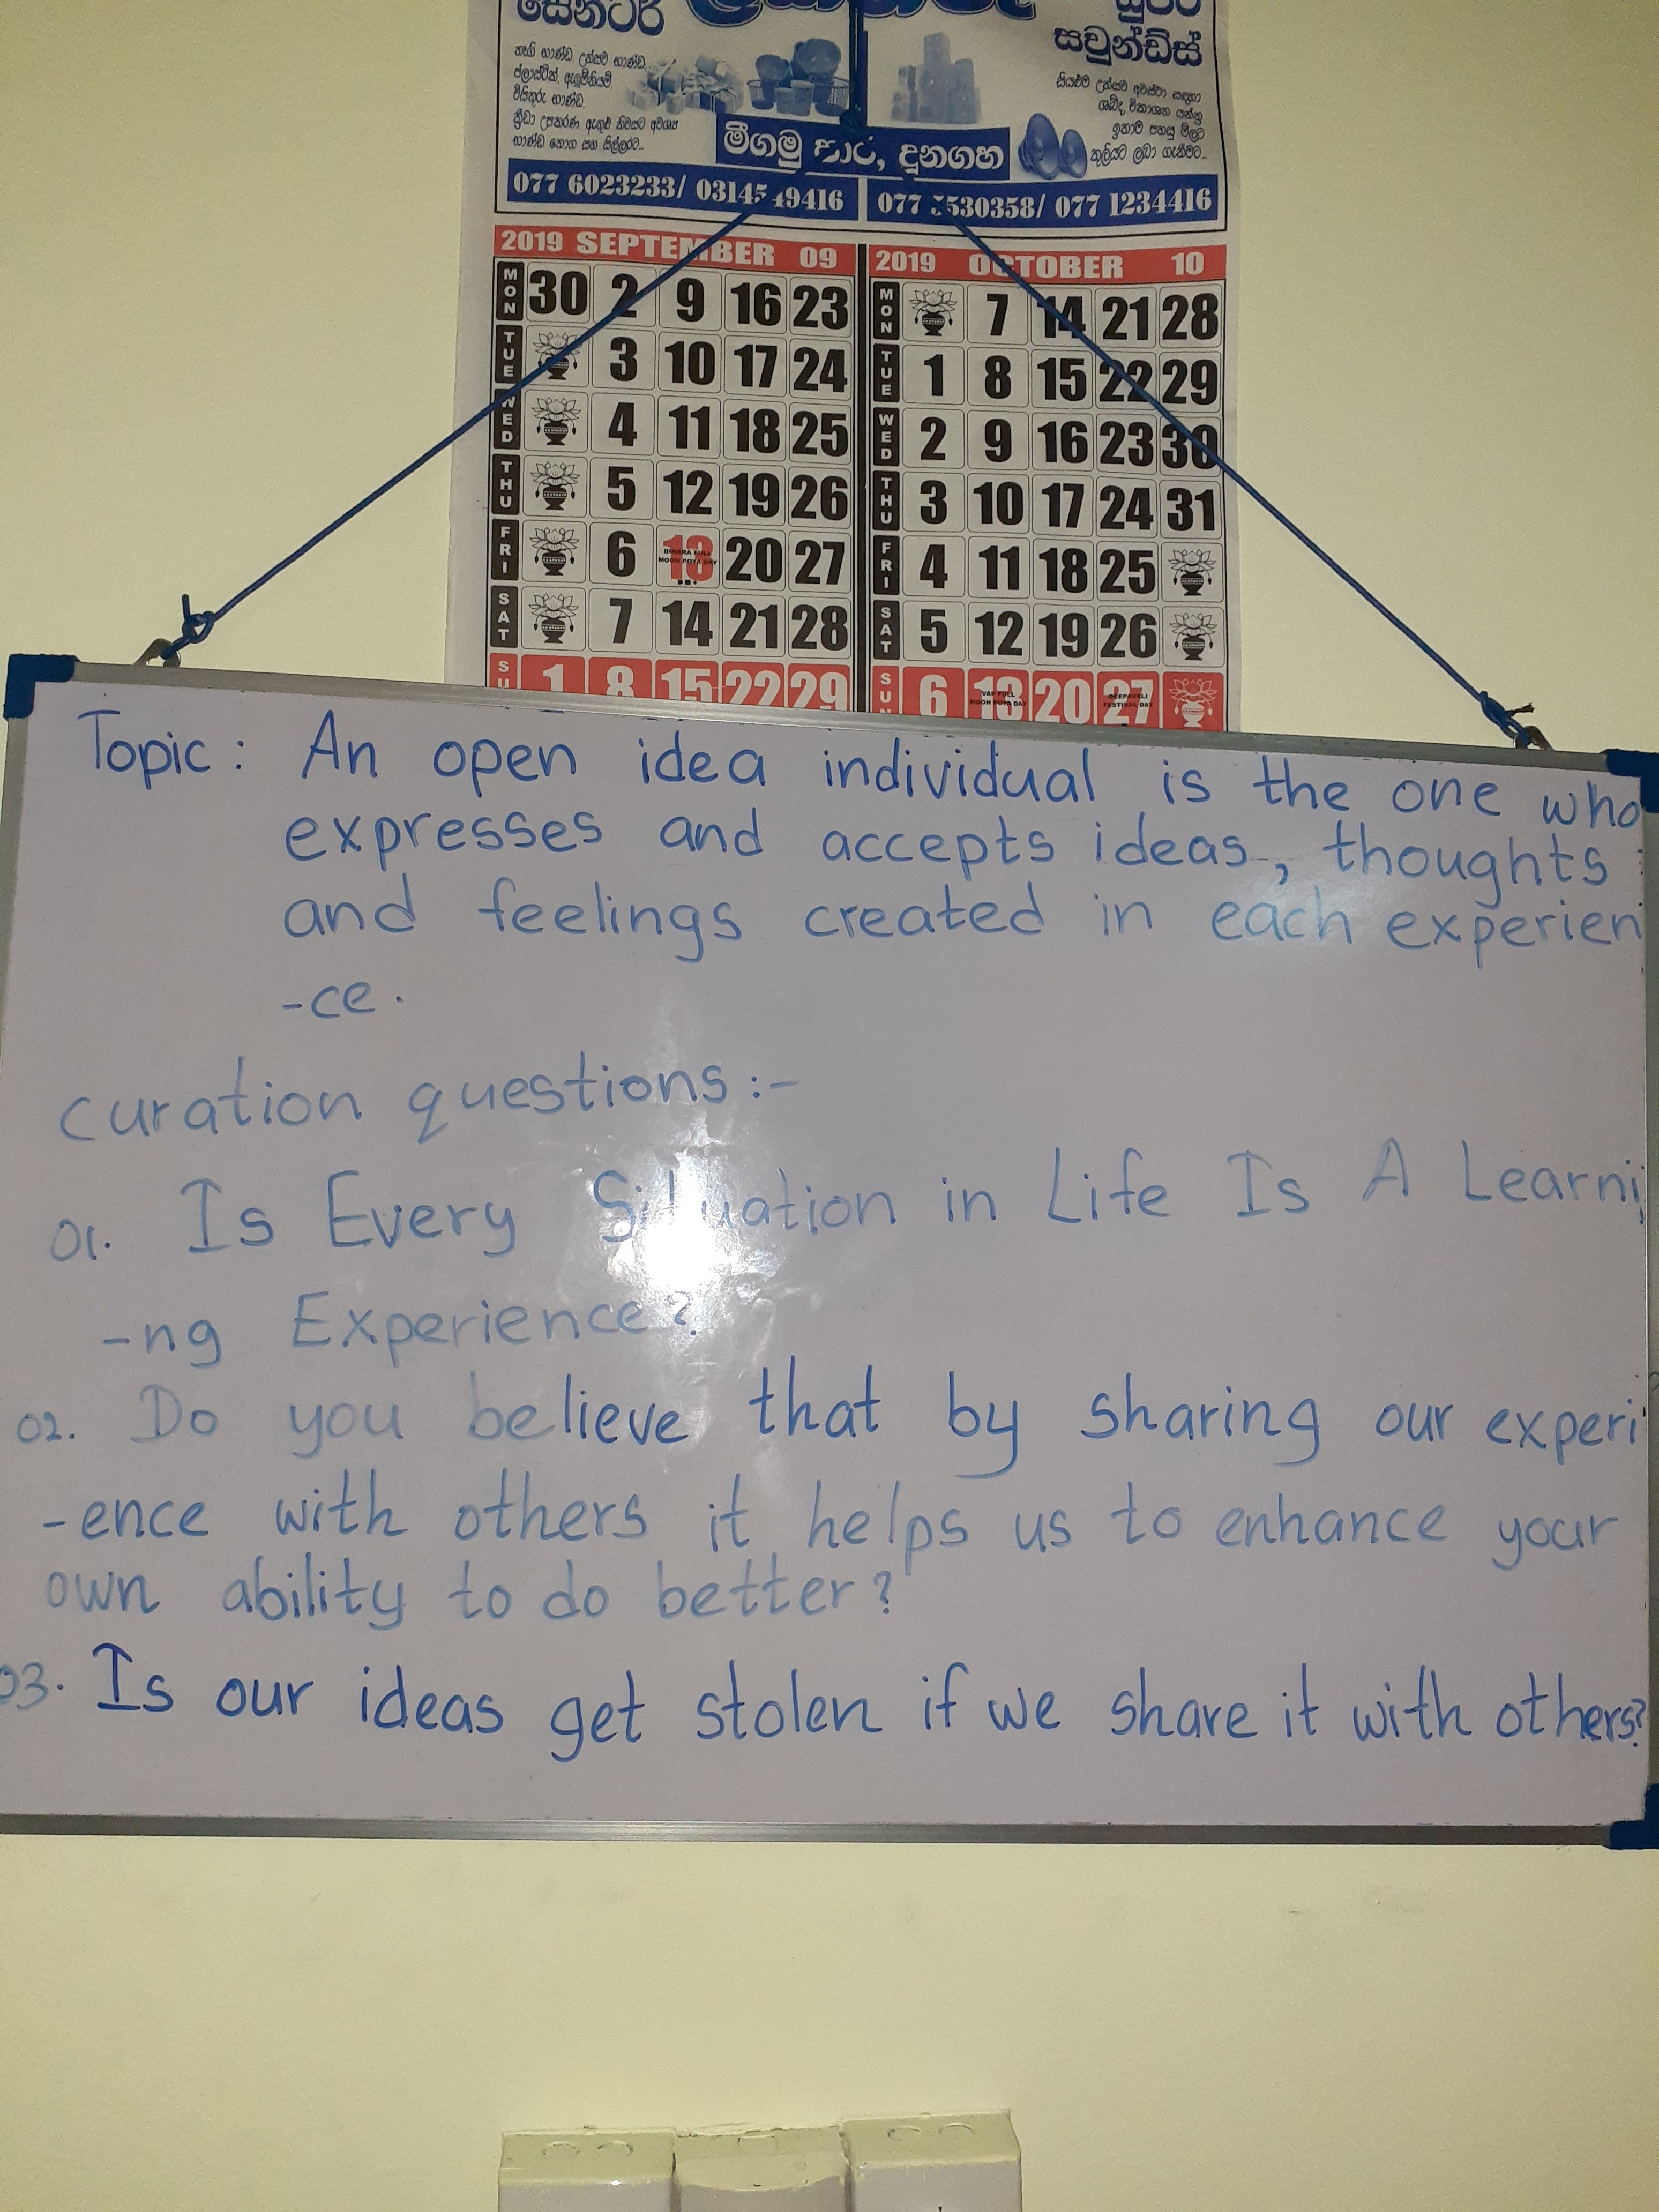 සෙන්ටර්
සවුන්ඩ්ස්
තෑගි භාණ්ඩ, උත්සව භාණ්ඩ,
ප්ලාස්ටික්, ඇලුමිනියම්
විසිතුරු භාණ්ඩ,
ක්‍රීඩා උපකරණ ඇතුළු නිවසට අවශ්‍ය
භාණ්ඩ තොග සහ සිල්ලරට...
සියළුම උත්සව අවස්ථා සඳහා
ශබ්ද විකාශන යන්ත්‍ර
ඉතාම පහසු මිලට
කුලියට ලබා ගැනීමට...
මීගමු පාර, දූනගහ
077 6023233/
077 1234416
2019 SEPTEMBER 09
MON 30 2 9 16 23
TUE 3 10 17 24
WED 4 11 18 25
THU 5 12 19 26
FRI 6 13 20 27
BINARA FULL MOON POYA DAY
SAT 7 14 21 28
SU 1 8 15 22 29
2019 OCTOBER 10
MON 7 14 21 28
TUE 1 8 15 22 29
WED 2 9 16 23 30
THU 3 10 17 24 31
FRI 4 11 18 25
SAT 5 12 19 26
SUN 6 13 20 27
VAP FULL MOON POYA DAY
DEEPAVALI FESTIVAL DAY
Topic : An open idea individual is the one who
expresses and accepts ideas, thoughts
and feelings created in each experien
-ce.
curation questions:-
01. Is Every Situation in Life Is A Learni
-ng Experience?
02. Do you believe that by sharing our experi
-ence with others it helps us to enhance your
own ability to do better?
03. Is our ideas get stolen if we share it with others?